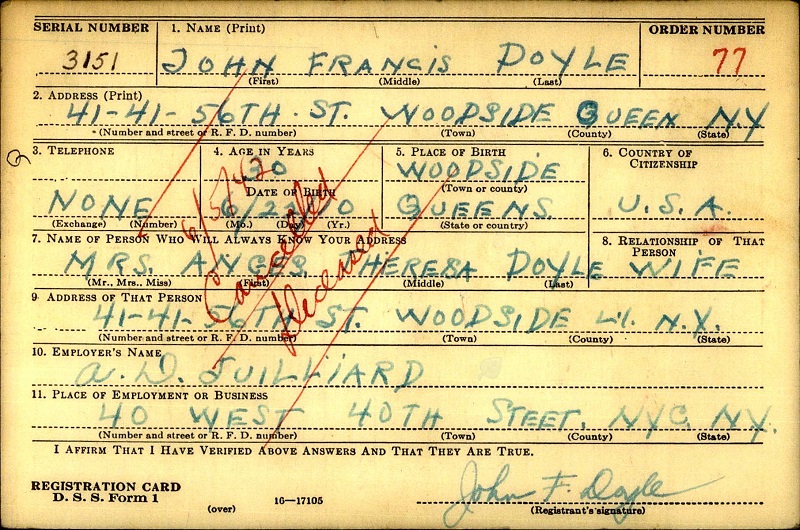 SERIAL NUMBER 1. NAME (Print) ORDER NUMBER
3151 JOHN FRANCIS DOYLE 77
(First) (Middle) (Last)
2. ADDRESS (Print)
41-41-56TH. ST. WOODSIDE QUEEN N.Y
(Number and street or R. F. D. number) (Town) (County) (State)
3. TELEPHONE 4. AGE IN YEARS 5. PLACE OF BIRTH 6. COUNTRY OF CITIZENSHIP
20 WOODSIDE
DATE OF BIRTH (Town or county)
NONE 6/22/20 QUEENS. U.S.A.
(Exchange) (Number) (Mo.) (Day) (Yr.) (State or country)
Cancelled
Deceased
7. NAME OF PERSON WHO WILL ALWAYS KNOW YOUR ADDRESS 8. RELATIONSHIP OF THAT PERSON
MRS. ANGES THERESA DOYLE WIFE
(Mr., Mrs., Miss) (First) (Middle) (Last)
9. ADDRESS OF THAT PERSON
41-41-56TH ST. WOODSIDE L.I. N.Y.
(Number and street or R. F. D. number) (Town) (County) (State)
10. EMPLOYER'S NAME
A. D. JUILLIARD
11. PLACE OF EMPLOYMENT OR BUSINESS
40 WEST 40TH STEET, NYC. N.Y.
(Number and street or R. F. D. number) (Town) (County) (State)
I AFFIRM THAT I HAVE VERIFIED ABOVE ANSWERS AND THAT THEY ARE TRUE.
REGISTRATION CARD
D. S. S. Form 1 (over) 16—17105 John F. Doyle
(Registrant's signature)